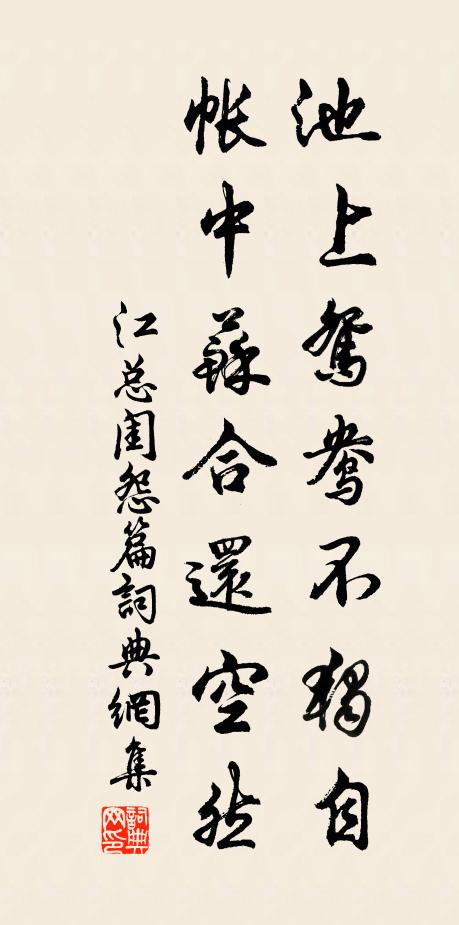 池上鴛鴦不獨自
帳中蘇合還空然
江总闺怨篇詞典網集
詞典网印